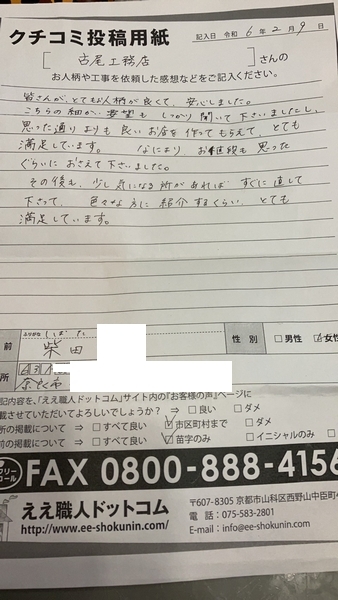 クチコミ投稿用紙
記入日 令和 6年 2月 9日
[ 古尾工務店 ]さんの
お人柄や工事を依頼した感想などをご記入ください。
皆さんが、とてもお人柄が良くて、安心しました。
こちらの細かい要望も しっかり聞いて下さいましたし、
思った通りよりも良いお店を作ってもらえて、とても
満足しています。 なにより、お値段も思った
ぐらいにおさえて下さいました。
その後も、少し気になる所があれば すぐに直して
下さって、 色々な方に紹介するくらい、とても
満足しています。
ふりがな しばた
前 柴田
性別 □男性 ☑女性
所
奈良市
記内容を、「ええ職人ドットコム」サイト内の「お客様の声」ページに
載させていただいてよろしいでしょうか? ⇒ □良い □ダメ
所の掲載について ⇒ □すべて良い ☑市区町村まで □ダメ
前の掲載について ⇒ □すべて良い ☑苗字のみ □イニシャルのみ
フリー
コール
FAX 0800-888-4156
ええ職人ドットコム
http://www.ee-shokunin.com/
〒607-8305 京都市山科区西野山中臣町
電 話:075-583-2801
E-mail:info@ee-shokunin.com